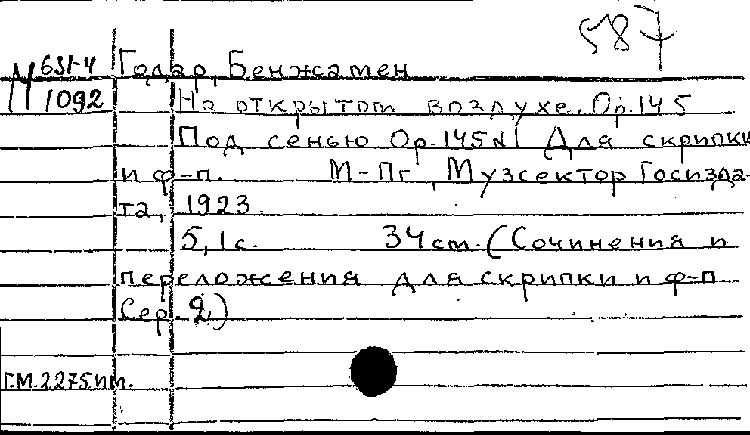 587
М 631-4 Годар, Бенжамен
1092 На открытом воздухе. Op. 145
Под сенью Op. 145 N1 Для скрипки
и ф-п. М-Пг, Музсектор Госизда-
та, 1923.
5,1 с. 34 см. (Сочинения и
переложения для скрипки и ф-п
Сер. 2)
Г.М. 2275 им.